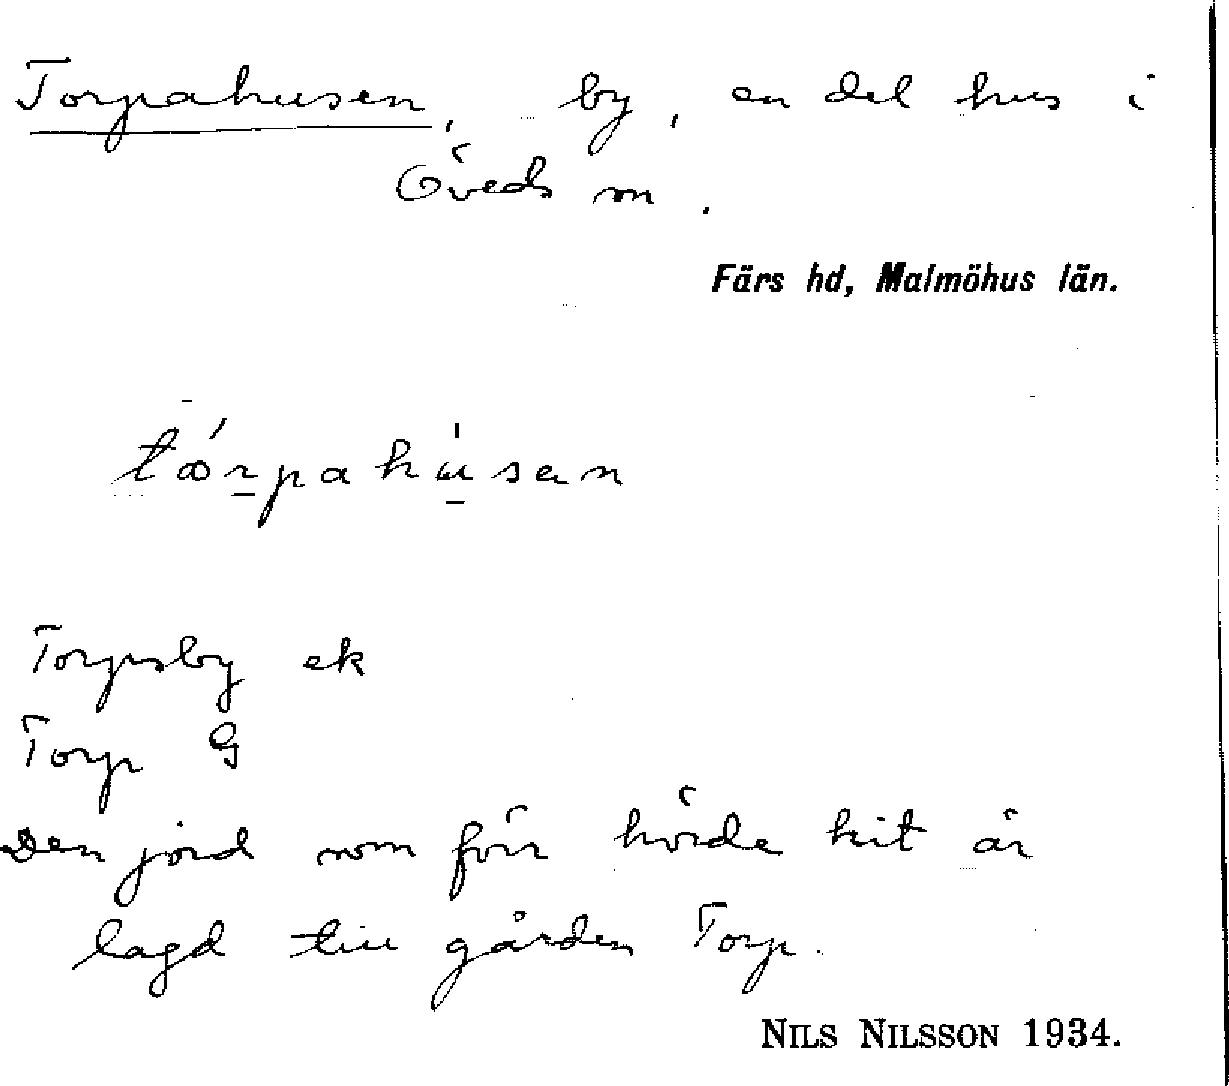 Torpahusen, by, en del hus i
Öveds sn.
Färs hd, Malmöhus län.
Torpsby ek
Torp G
Den jord som förr hörde hit är
lagd till gården Torp.
NILS NILSSON 1934.